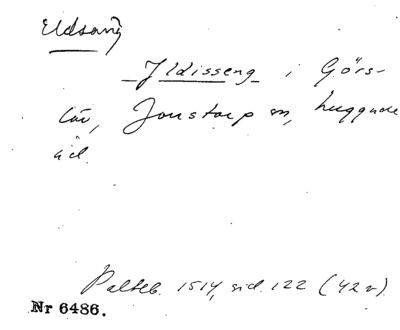 Udsång
Jldisseng i Görs-
löv, Jonstorp sn, huggande
äd.
Palteb. 1514, sid. 122 (42v)
Nr 6486.